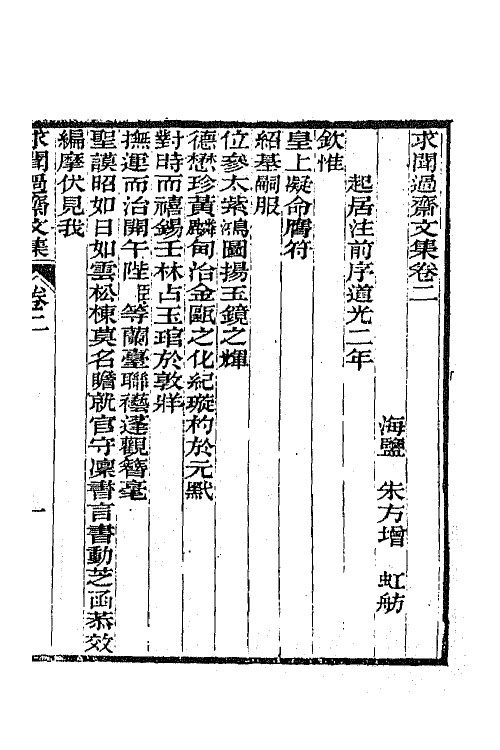 求聞過齋文集卷二
海鹽　朱方增　虹舫
起居注前序道光二年
欽惟
皇上凝命膺符
紹基嗣服
位參太紫鴻圖揚玉鏡之輝
德懋珍黃麟甸冶金甌之化紀璇杓於元黓
對時而禧錫壬林占玉琯於敦牂
撫運而治開午陛　等蘭臺聯襼蓬觀簪毫
聖謨昭如日如雲松棟莫名瞻就官守凜書言書動芝函恭效
編摩伏見我
求聞過齋文集　卷二　一